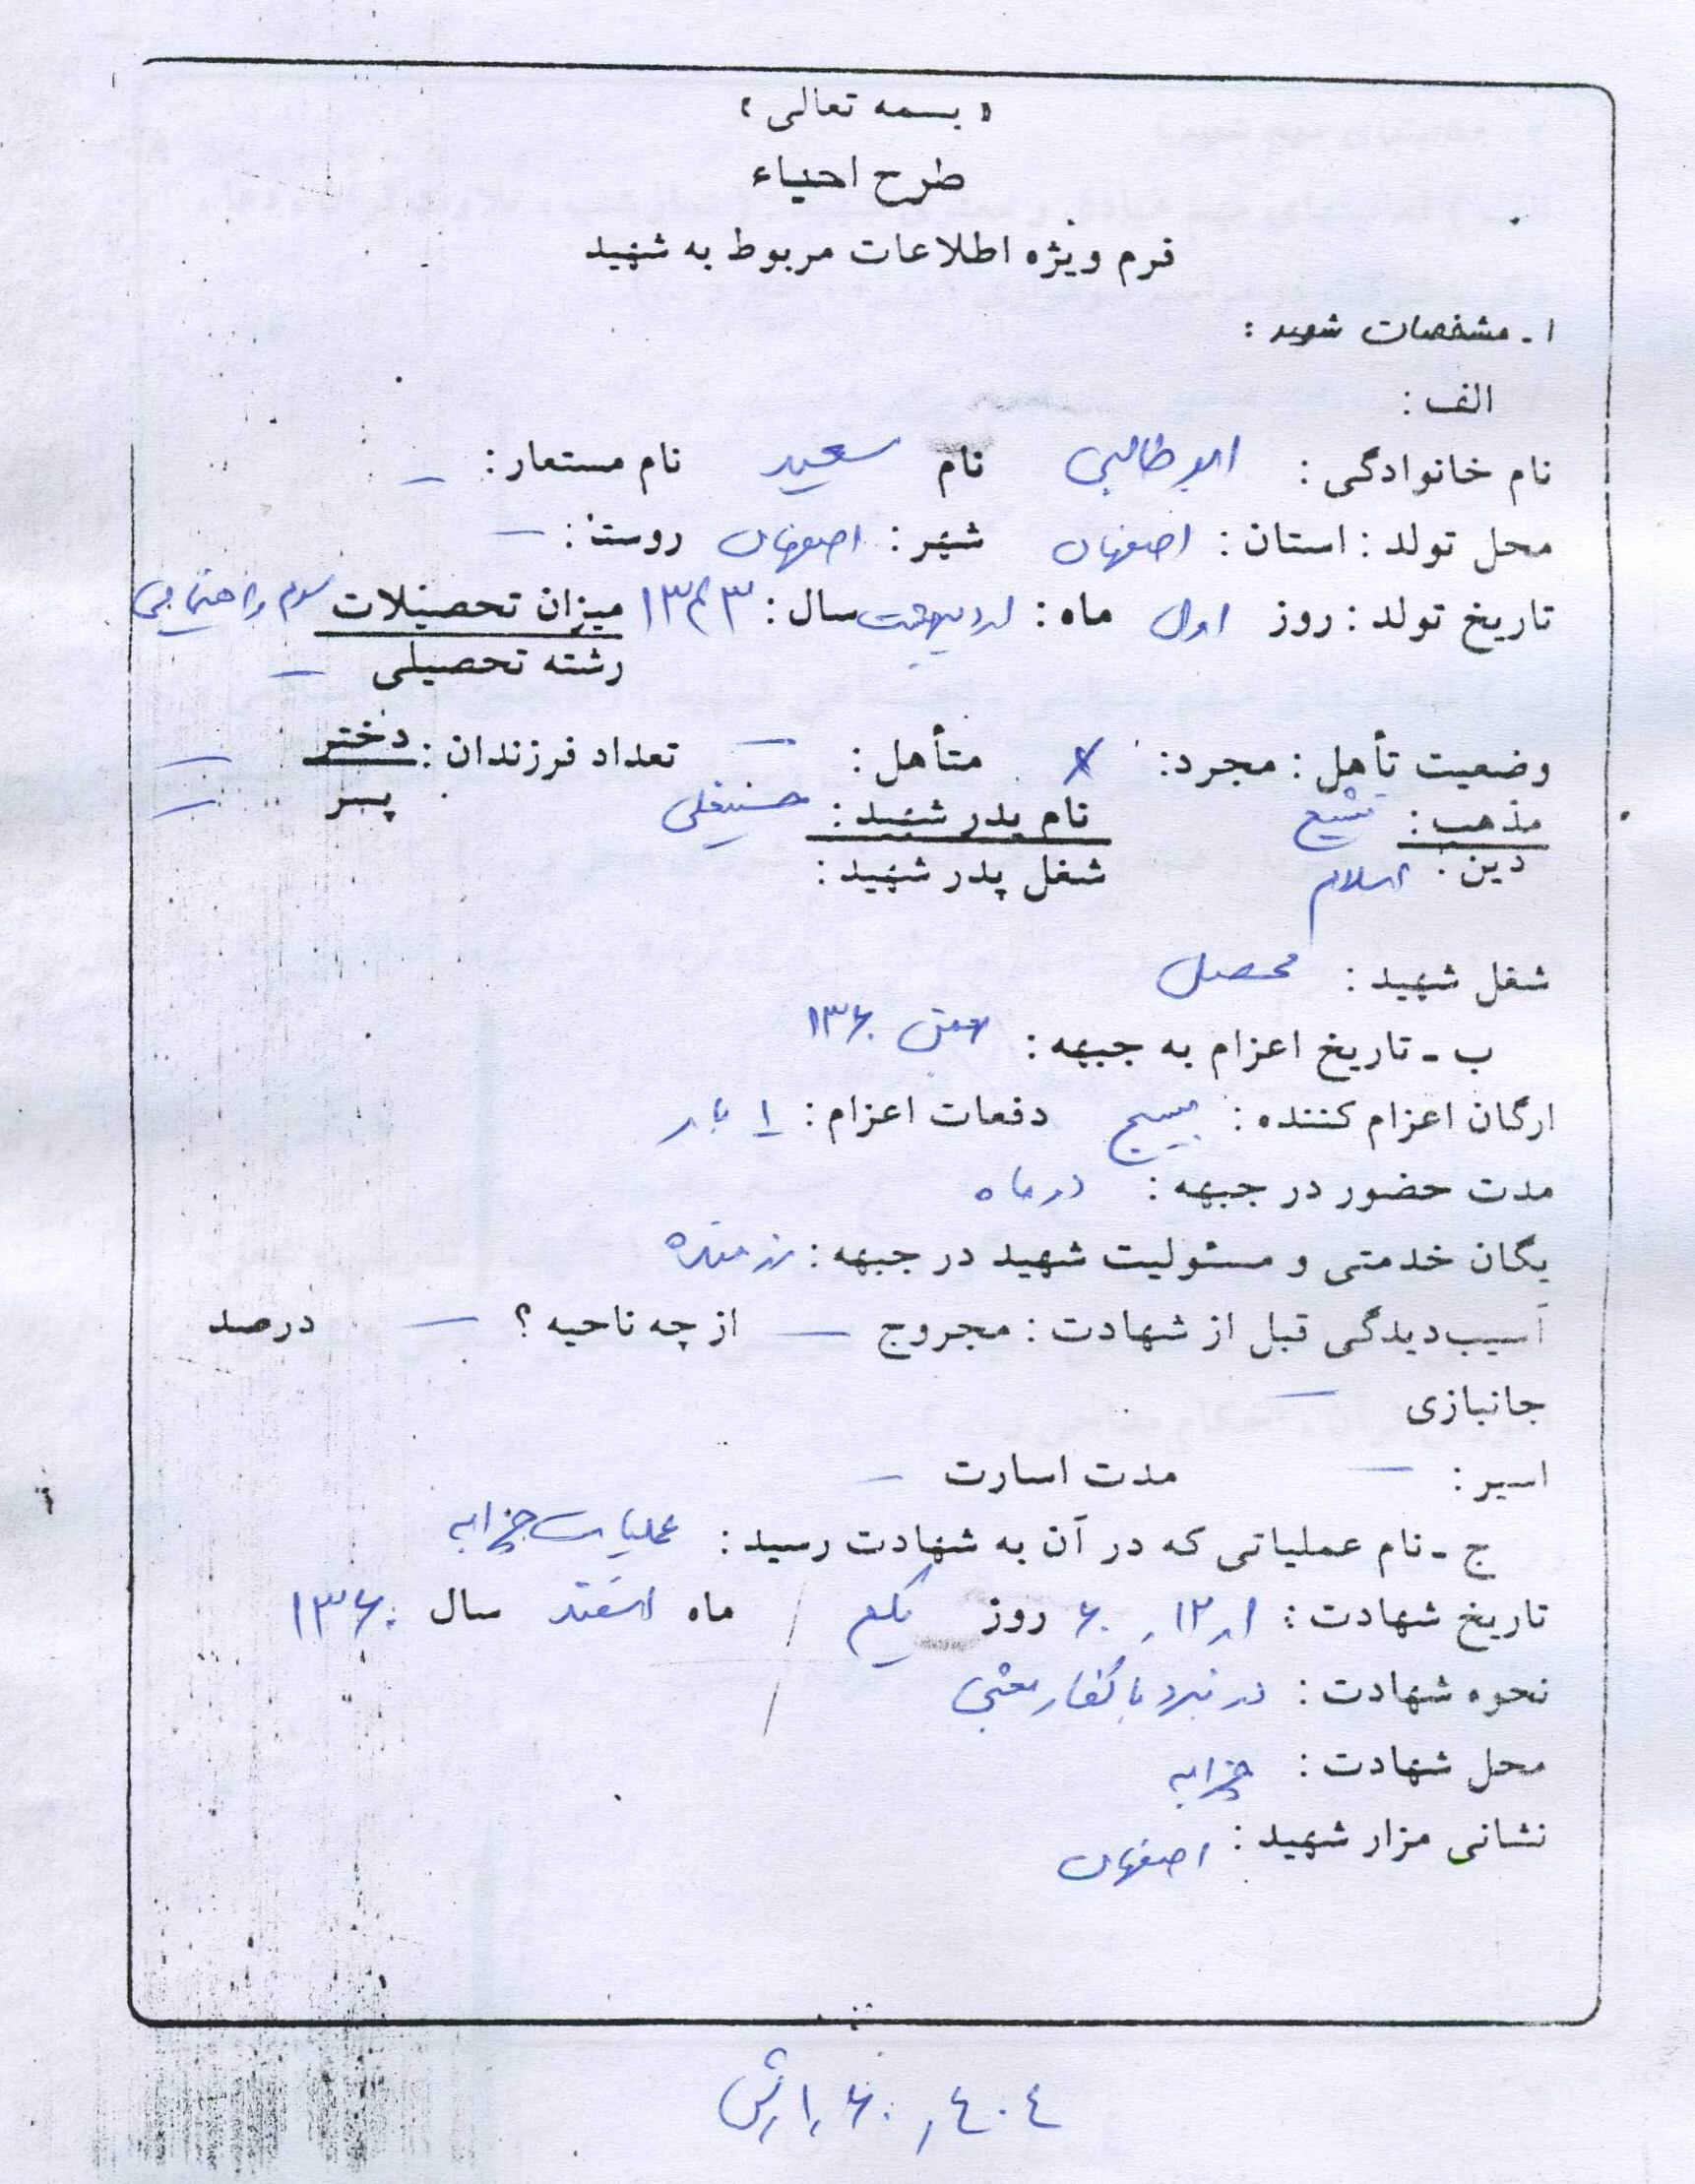 « بسمه تعالی »
طرح احیاء
فرم ویژه اطلاعات مربوط به شهید
۱ـ مشخصات شهید :
الف :
نام خانوادگی : ابوطالبی نام سعید نام مستعار : ـ
محل تولد : استان : اصفهان شهر : اصفهان روستا : ـ
تاریخ تولد : روز اول ماه : اردیبهشت سال : ۱۳۴۳ میزان تحصیلات سوم راهنمایی
رشته تحصیلی ـ
وضعیت تأهل : مجرد : × متأهل : ـ تعداد فرزندان : دختر ـ
مذهب : تشیع نام پدر شهید : حسینعلی پسر ـ
دین : اسلام شغل پدر شهید :
شغل شهید : محصل
ب ـ تاریخ اعزام به جبهه : بهمن ۱۳۶۰
ارگان اعزام کننده : بسیج دفعات اعزام : ۱ بار
مدت حضور در جبهه : دو ماه
یگان خدمتی و مسئولیت شهید در جبهه : رزمنده
آسیب‌دیدگی قبل از شهادت : مجروح ـ از چه ناحیه ؟ ـ درصد
جانبازی ـ
اسیر : ـ مدت اسارت ـ
ج ـ نام عملیاتی که در آن به شهادت رسید : عملیات چزابه
تاریخ شهادت : ۱ر۱۲ر۶۰ روز یکم ماه اسفند سال ۱۳۶۰
نحوه شهادت : در نبرد با کفار بعثی
محل شهادت : چزابه
نشانی مزار شهید : اصفهان